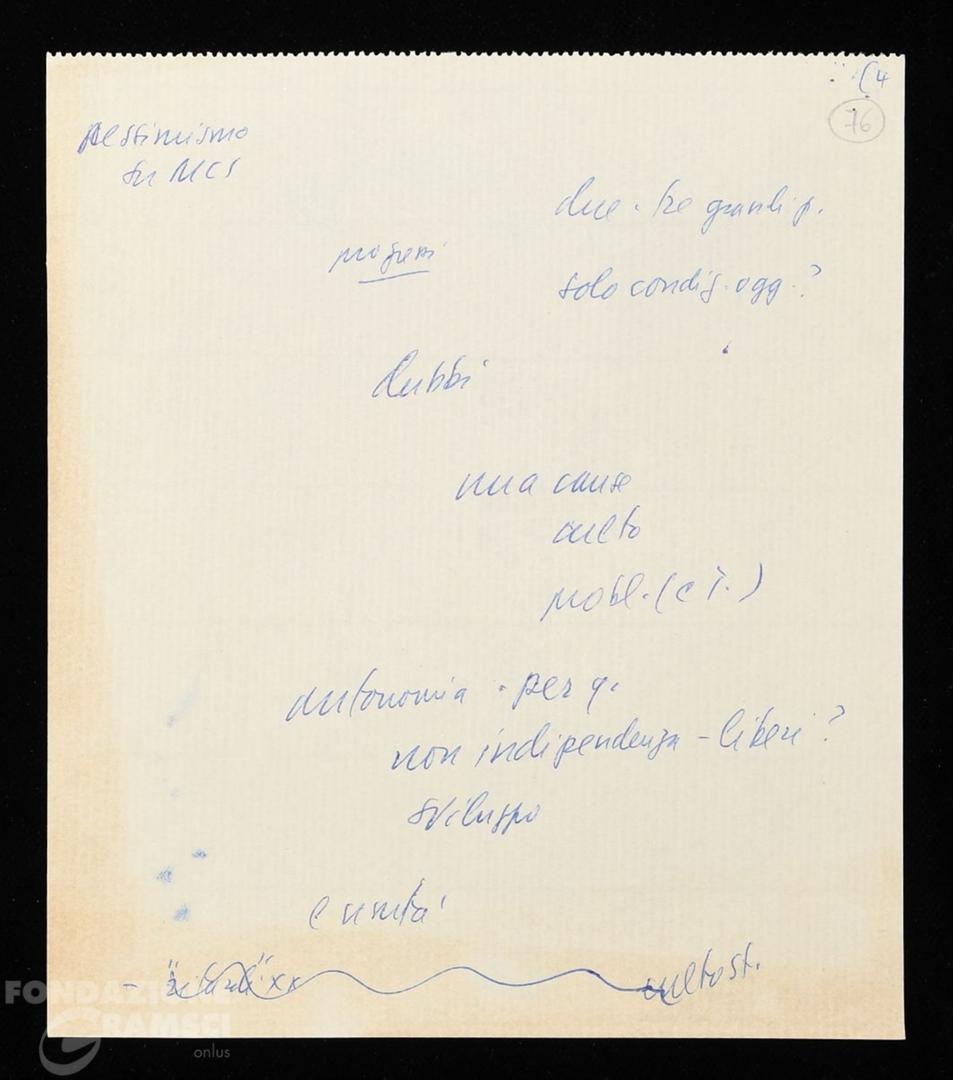 (4
76
pessimismo
su MCS
due - tre grandi p.
progressi
solo condiz. ogg.?
dubbi
una causa
culto
probl. (c i.)
autonomia - per q.
non indipendenza - liberi?
sviluppo
e unità
- xx culto St.
FONDAZIONE
GRAMSCI
onlus